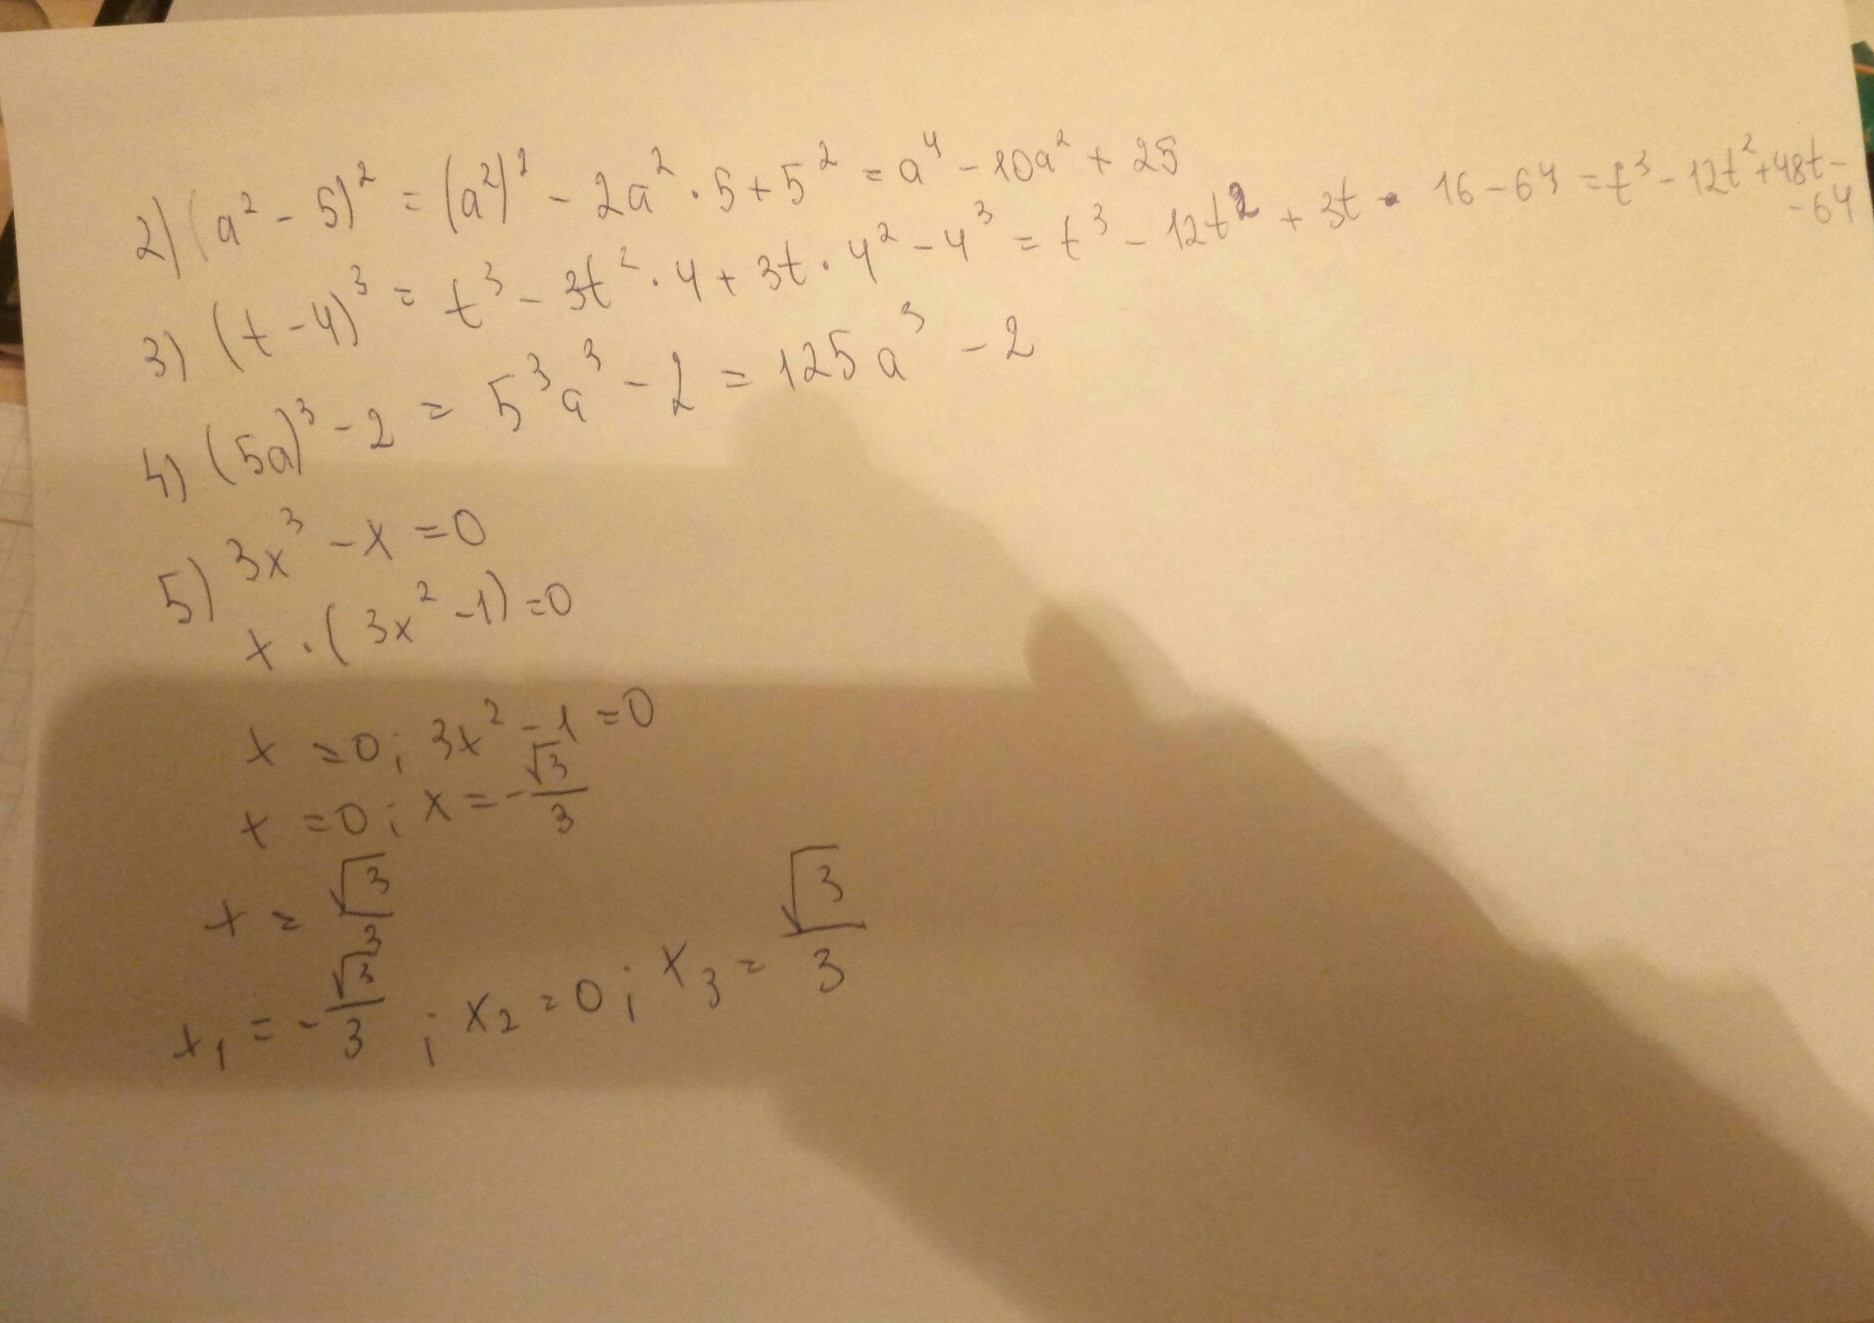 2) (a² - 5)² = (a²)² - 2a² · 5 + 5² = a⁴ - 10a² + 25
3) (t - 4)³ = t³ - 3t² · 4 + 3t · 4² - 4³ = t³ - 12t² + 3t · 16 - 64 = t³ - 12t² + 48t -
- 64
4) (5a)³ - 2 = 5³a³ - 2 = 125a³ - 2
5) 3x³ - x = 0
x · (3x² - 1) = 0
x = 0; 3x² - 1 = 0
x = 0; x = -√3/3
x = √3/3
x₁ = -√3/3; x₂ = 0; x₃ = √3/3